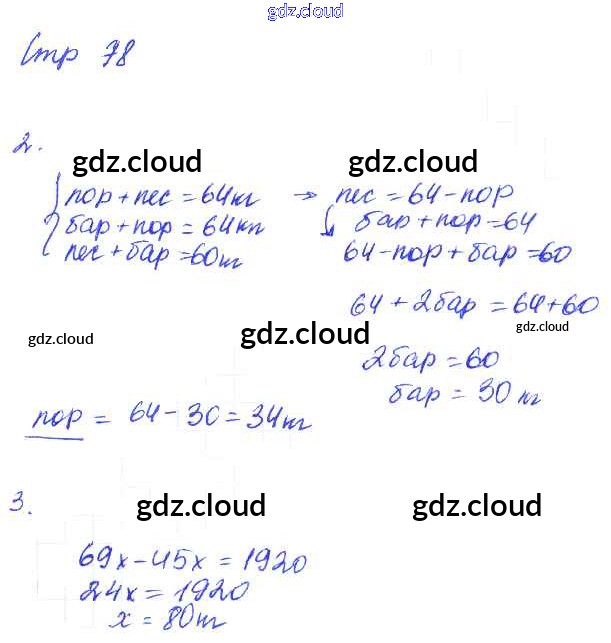 gdz.cloud
Стр 78
2.
gdz.cloud gdz.cloud
пор + пес = 64 кг → пес = 64 - пор
бар + пор = 64 кг бар + пор = 64
пес + бар = 60 кг 64 - пор + бар = 60
64 + 2бар = 64 + 60
gdz.cloud gdz.cloud gdz.cloud
2бар = 60
бар = 30 кг
пор = 64 - 30 = 34 кг
3.
gdz.cloud gdz.cloud
69x - 45x = 1920
24x = 1920
x = 80 кг